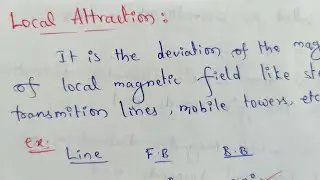 Local Attraction:
It is the deviation of the mag
of local magnetic field like ste
transmition lines, mobile towers, etc
ex:
Line F.B B.B